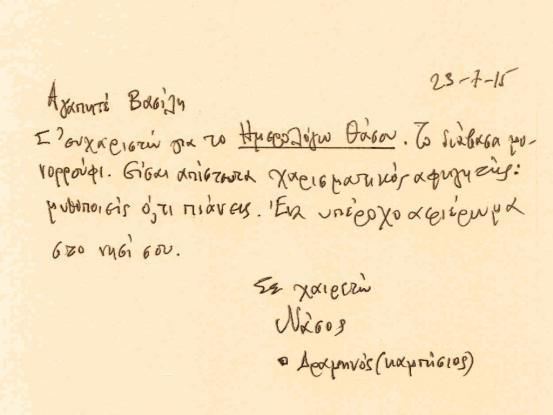 23-7-15
Αγαπητέ Βασίλη
Σ' ευχαριστώ για το Ημερολόγιο Θάσου. Το διάβασα μο-
νορρούφι. Είσαι απίστευτα χαρισματικός αφηγητής:
μυθοποιείς ό,τι πιάνεις. Ένα υπέροχο αφιέρωμα
στο νησί σου.
Σε χαιρετώ
Νάσος
ο Δραμηνός (καμπήσιος)